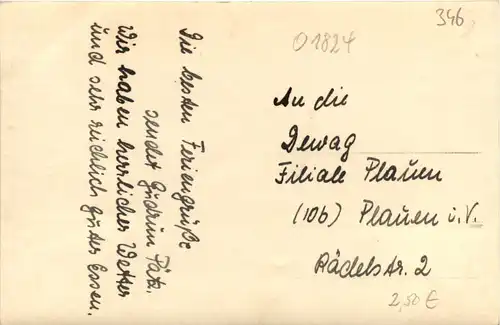 Die besten Feriengrüße
sendet Gudrun Pätz.
Wir haben herrliches Wetter
und sehr reichlich gutes Essen.
346
01824
An die
Dewag
Filiale Plauen
(10b) Plauen i. V.
Rädelstr. 2
2,50 €